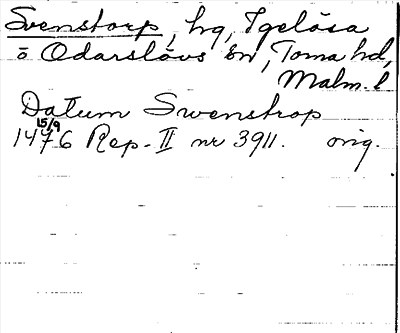 Svenstorp, hg, Igelösa
o Odarslövs sn, Torna hd,
Malm. l
Datum Swenstrop
15/9
1476 Rep. II nr 3911. orig.